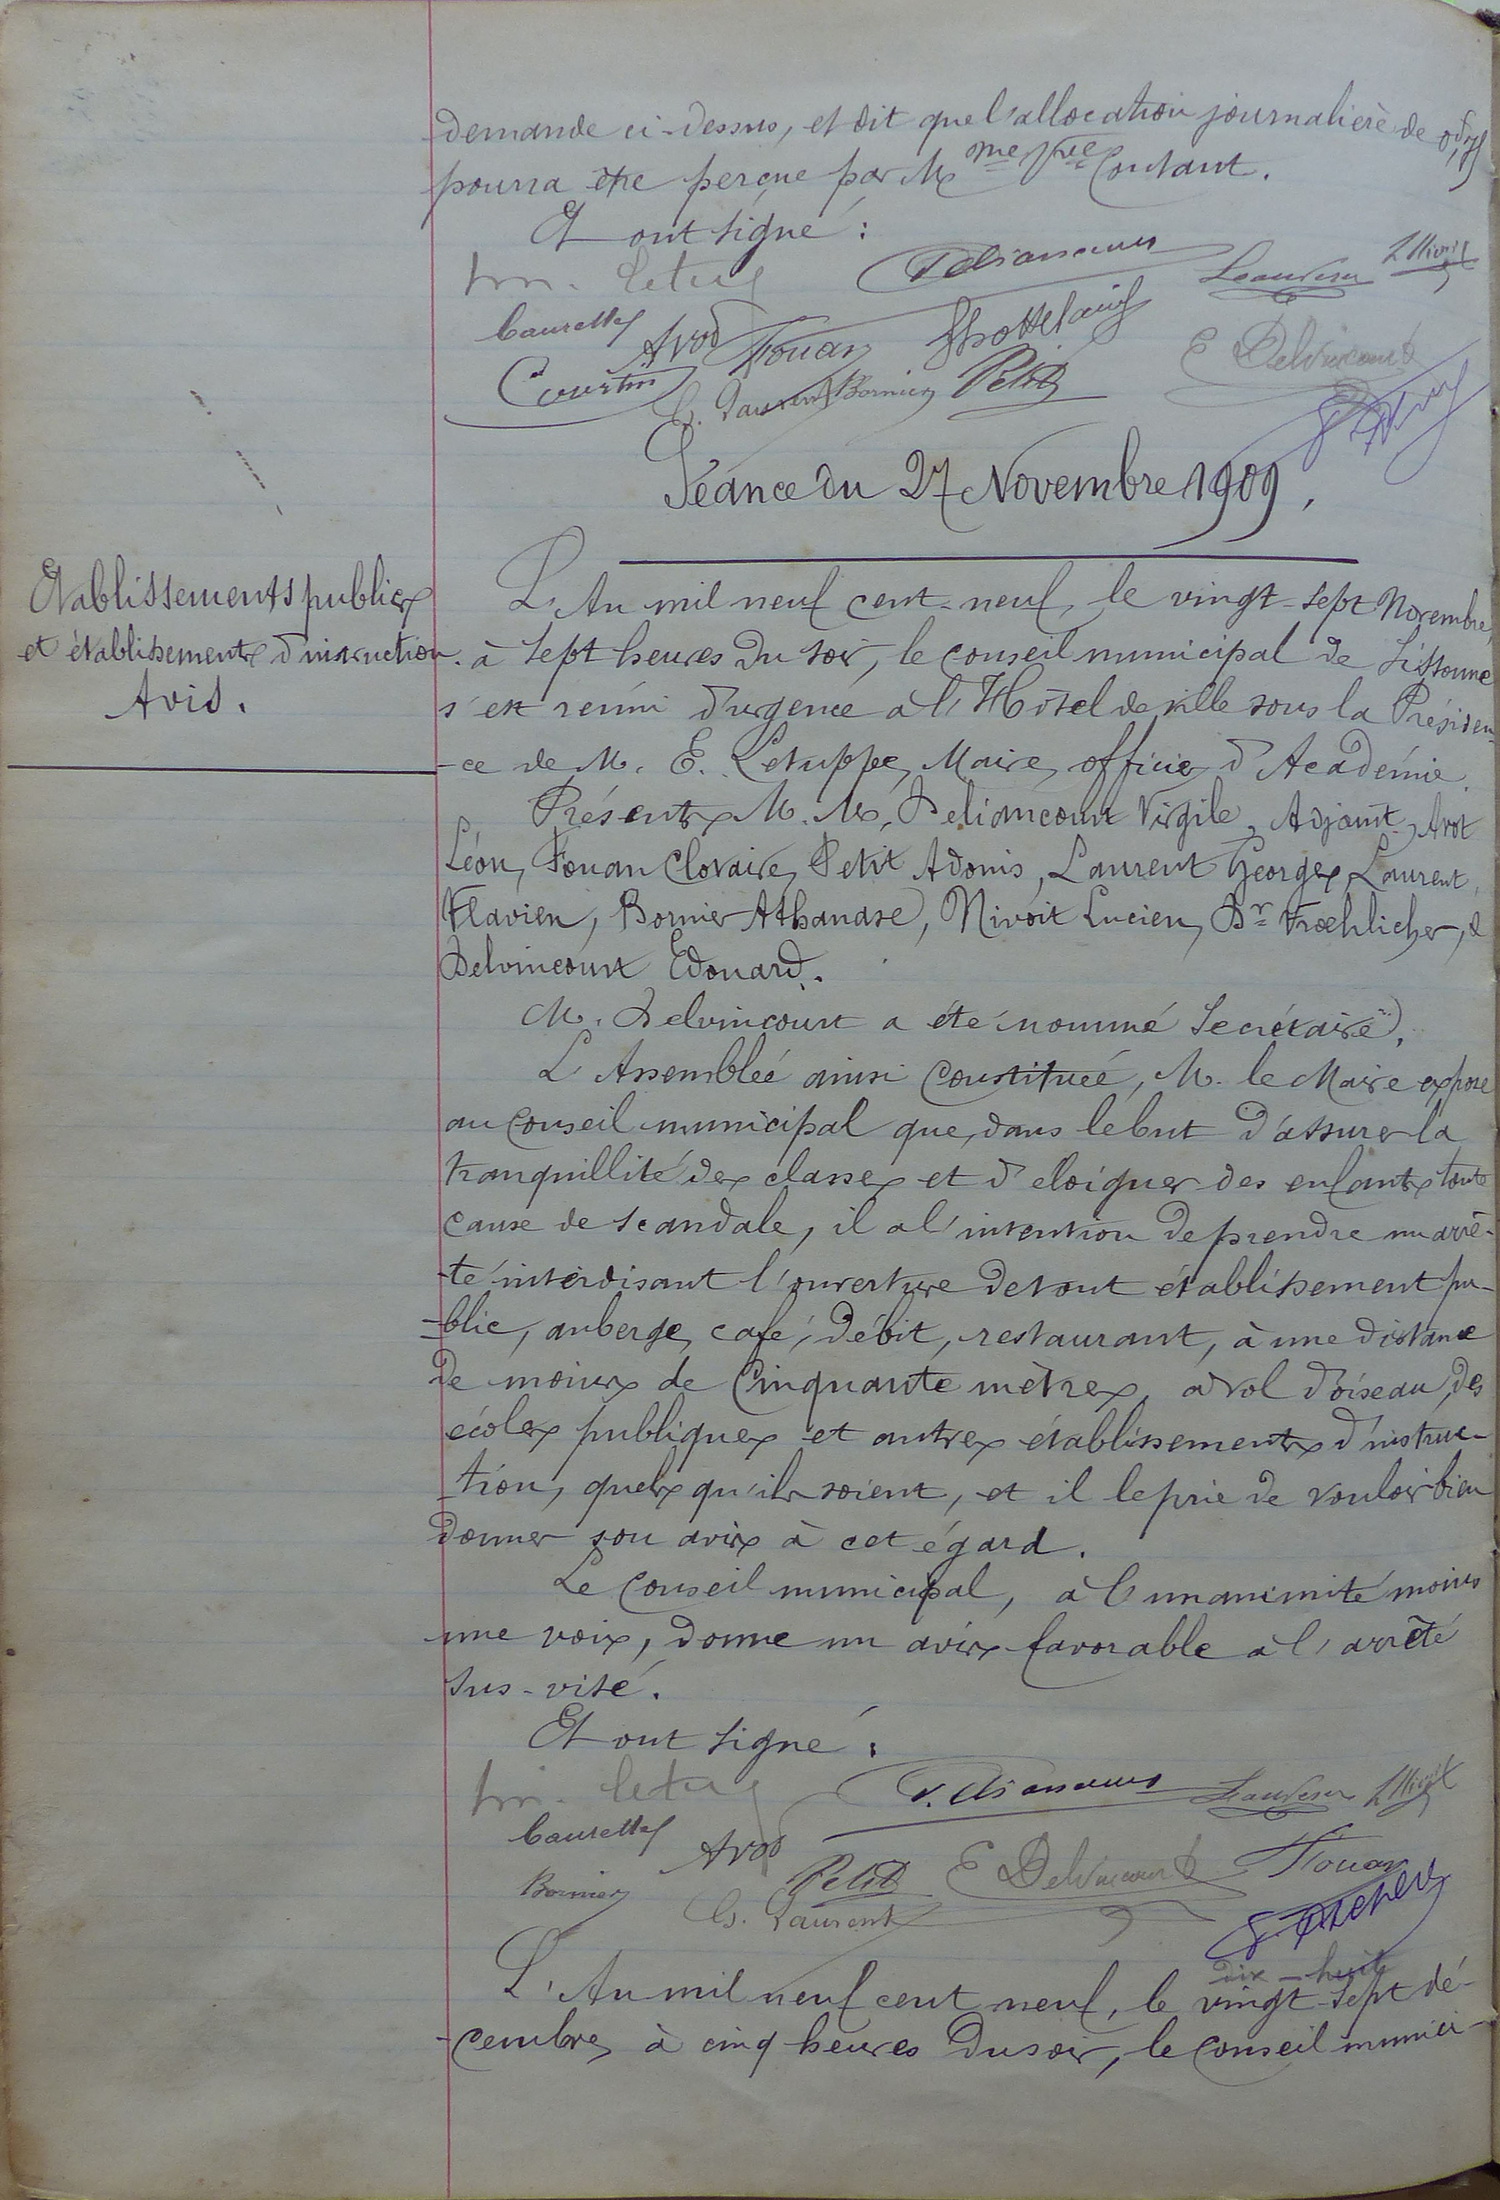 demande ci-dessus, et dit que l'allocation journalière de 0f,75
pourra être perçue par Mme Vve Coutant.
Et ont signé :
Caurette
Avot Fouan
Courtin G. Laurent Bornier Petit
E Delvincourt
Séance du 27 Novembre 1909.
Etablissements publics
et établissements d'instruction.
Avis.
L'An mil neuf cent-neuf, le vingt-sept Novembre,
à sept heures du soir, le conseil municipal de Sissonne
s'est réuni d'urgence à l'Hôtel de ville sous la Présiden-
-ce de M. E. Letuppe, Maire, officier d'Académie.
Présents M. M. Deliancourt Virgile, Adjoint, Avot
Léon, Fouan Clovaire, Petit Adonis, Laurent Georges, Laurent
Flavien, Bornier Athanase, Nivoit Lucien, Dr Froehlicher, &
Delvincourt Edouard.
M. Delvincourt a été nommé Secrétaire.
L'Assemblée ainsi constituée, M. le Maire expose
au conseil municipal que, dans le but d'assurer la
tranquillité des classes et d'eloigner des enfants toute
cause de scandale, il a l'intention de prendre un arrê-
-té interdisant l'ouverture de tout établissement pu-
-blic, auberge, café, débit, restaurant, à une distance
de moins de cinquante mètres, à vol d'oiseau, des
écoles publiques et autres établissements d'instruc-
-tion, quels qu'ils soient, et il le prie de vouloir bien
donner son avis à cet égard.
Le conseil municipal, à l'unanimité moins
une voix, donne un avis favorable à l'arrêté
sus-visé.
Et ont signé :
Caurette
Avot
Petit E Delvincourt Fouan
Bornier G. Laurent
dix-huit
L'An mil neuf cent neuf, le vingt-sept dé-
-cembre, à cinq heures du soir, le conseil munici-